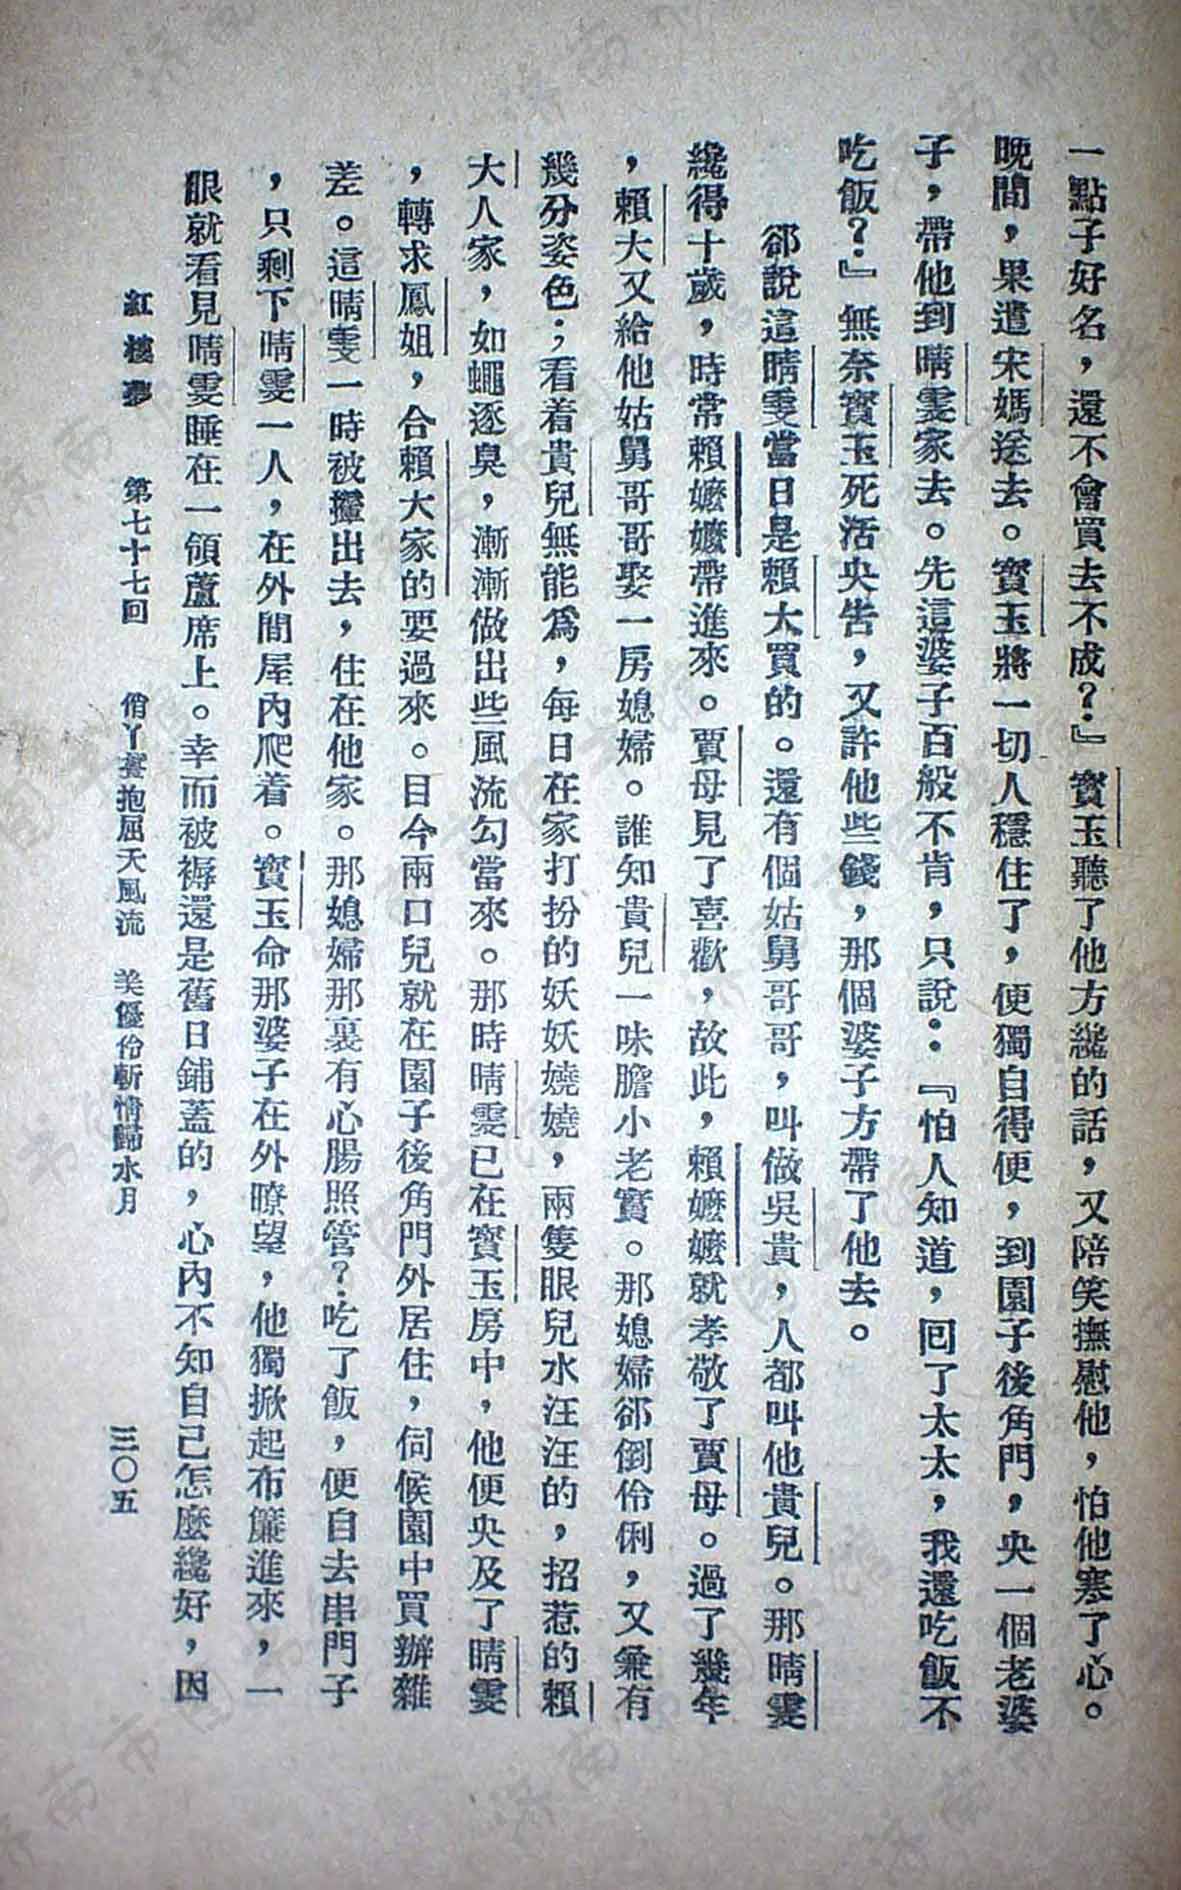 一點子好名，還不會買去不成？』寶玉聽了他方纔的話，又陪笑撫慰他，怕他寒了心。
晚間，果遣宋媽送去。寶玉將一切人穩住了，便獨自得便，到園子後角門，央一個老婆
子，帶他到晴雯家去。先這婆子百般不肯，只說：『怕人知道，回了太太，我還吃飯不
吃飯？』無奈寶玉死活央告，又許他些錢，那個婆子方帶了他去。
郤說這晴雯當日是賴大買的。還有個姑舅哥哥，叫做吳貴，人都叫他貴兒。那晴雯
纔得十歲，時常賴嬤嬤帶進來。賈母見了喜歡，故此，賴嬤嬤就孝敬了賈母。過了幾年
，賴大又給他姑舅哥哥娶一房媳婦。誰知貴兒一味膽小老實。那媳婦郤倒伶俐，又兼有
幾分姿色；看着貴兒無能爲，每日在家打扮的妖妖嬈嬈，兩隻眼兒水汪汪的，招惹的賴
大人家，如蠅逐臭，漸漸做出些風流勾當來。那時晴雯已在寶玉房中，他便央及了晴雯
，轉求鳳姐，合賴大家的要過來。目今兩口兒就在園子後角門外居住，伺候園中買辦雜
差。這晴雯一時被攆出去，住在他家。那媳婦那裏有心腸照管？吃了飯，便自去串門子
，只剩下晴雯一人，在外間屋內爬着。寶玉命那婆子在外瞭望，他獨掀起布簾進來，一
眼就看見晴雯睡在一領蘆席上。幸而被褥還是舊日鋪蓋的，心內不知自己怎麼纔好，因
紅樓夢　第七十七回　俏丫鬟抱屈夭風流　美優伶斬情歸水月　三〇五